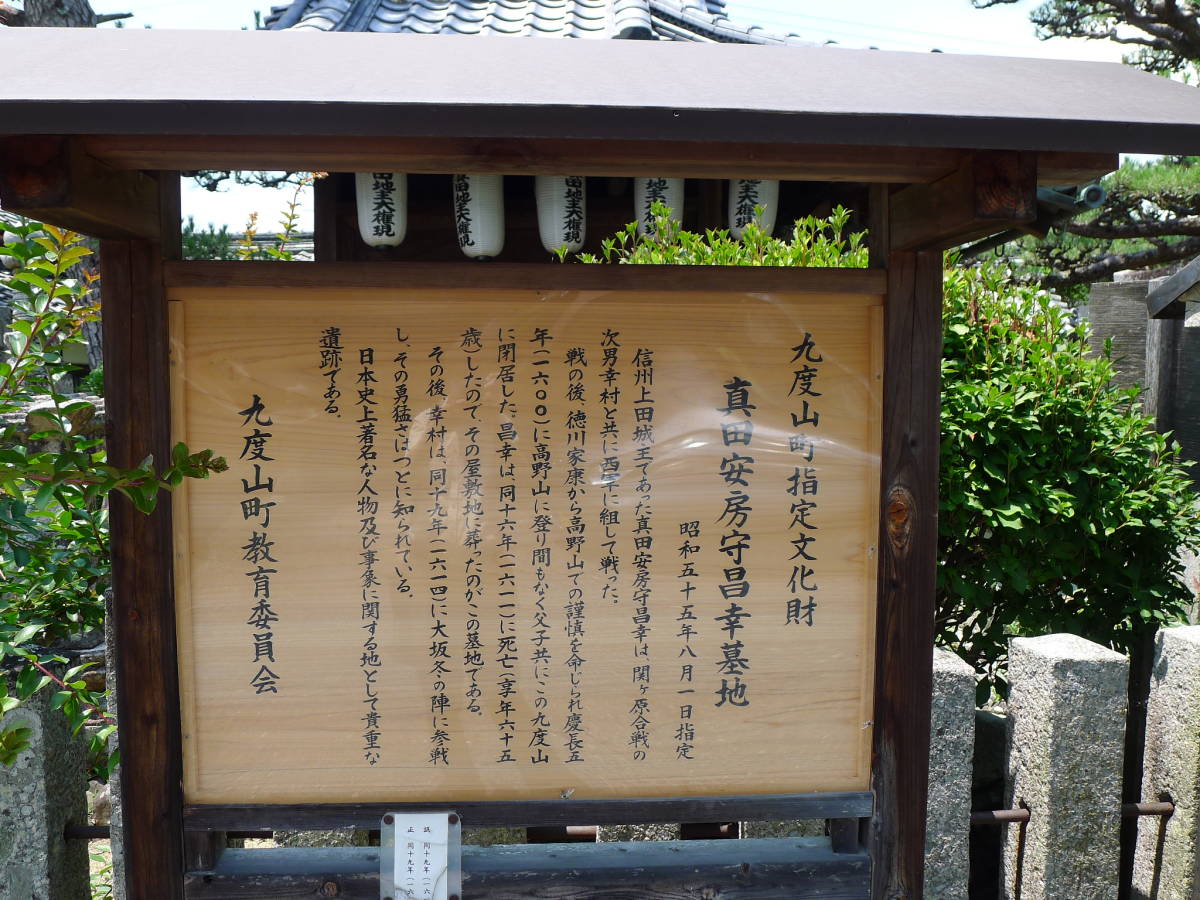 九度山町指定文化財
真田安房守昌幸墓地
昭和五十五年八月一日指定
信州上田城主であった真田安房守昌幸は、関ヶ原合戦の
次男幸村と共に西軍に組して戦った。
戦の後、徳川家康から高野山での謹慎を命じられ慶長五
年(一六〇〇)に高野山に登り間もなく父子共にこの九度山
に閉居した。昌幸は、同十六年(一六一一)に死亡(享年六十五
歳)したので、その屋敷地に葬ったのがこの墓地である。
その後、幸村は、同十九年(一六一四)に大坂冬の陣に参戦
し、その勇猛さはつとに知られている。
日本史上著名な人物及び事象に関する地として貴重な
遺跡である。
九度山町教育委員会
田地主大権現
真田地主大権現
田地主大権現
地主大権現
地主大権現
誤 同十九年(一六
正 同十九年(一六